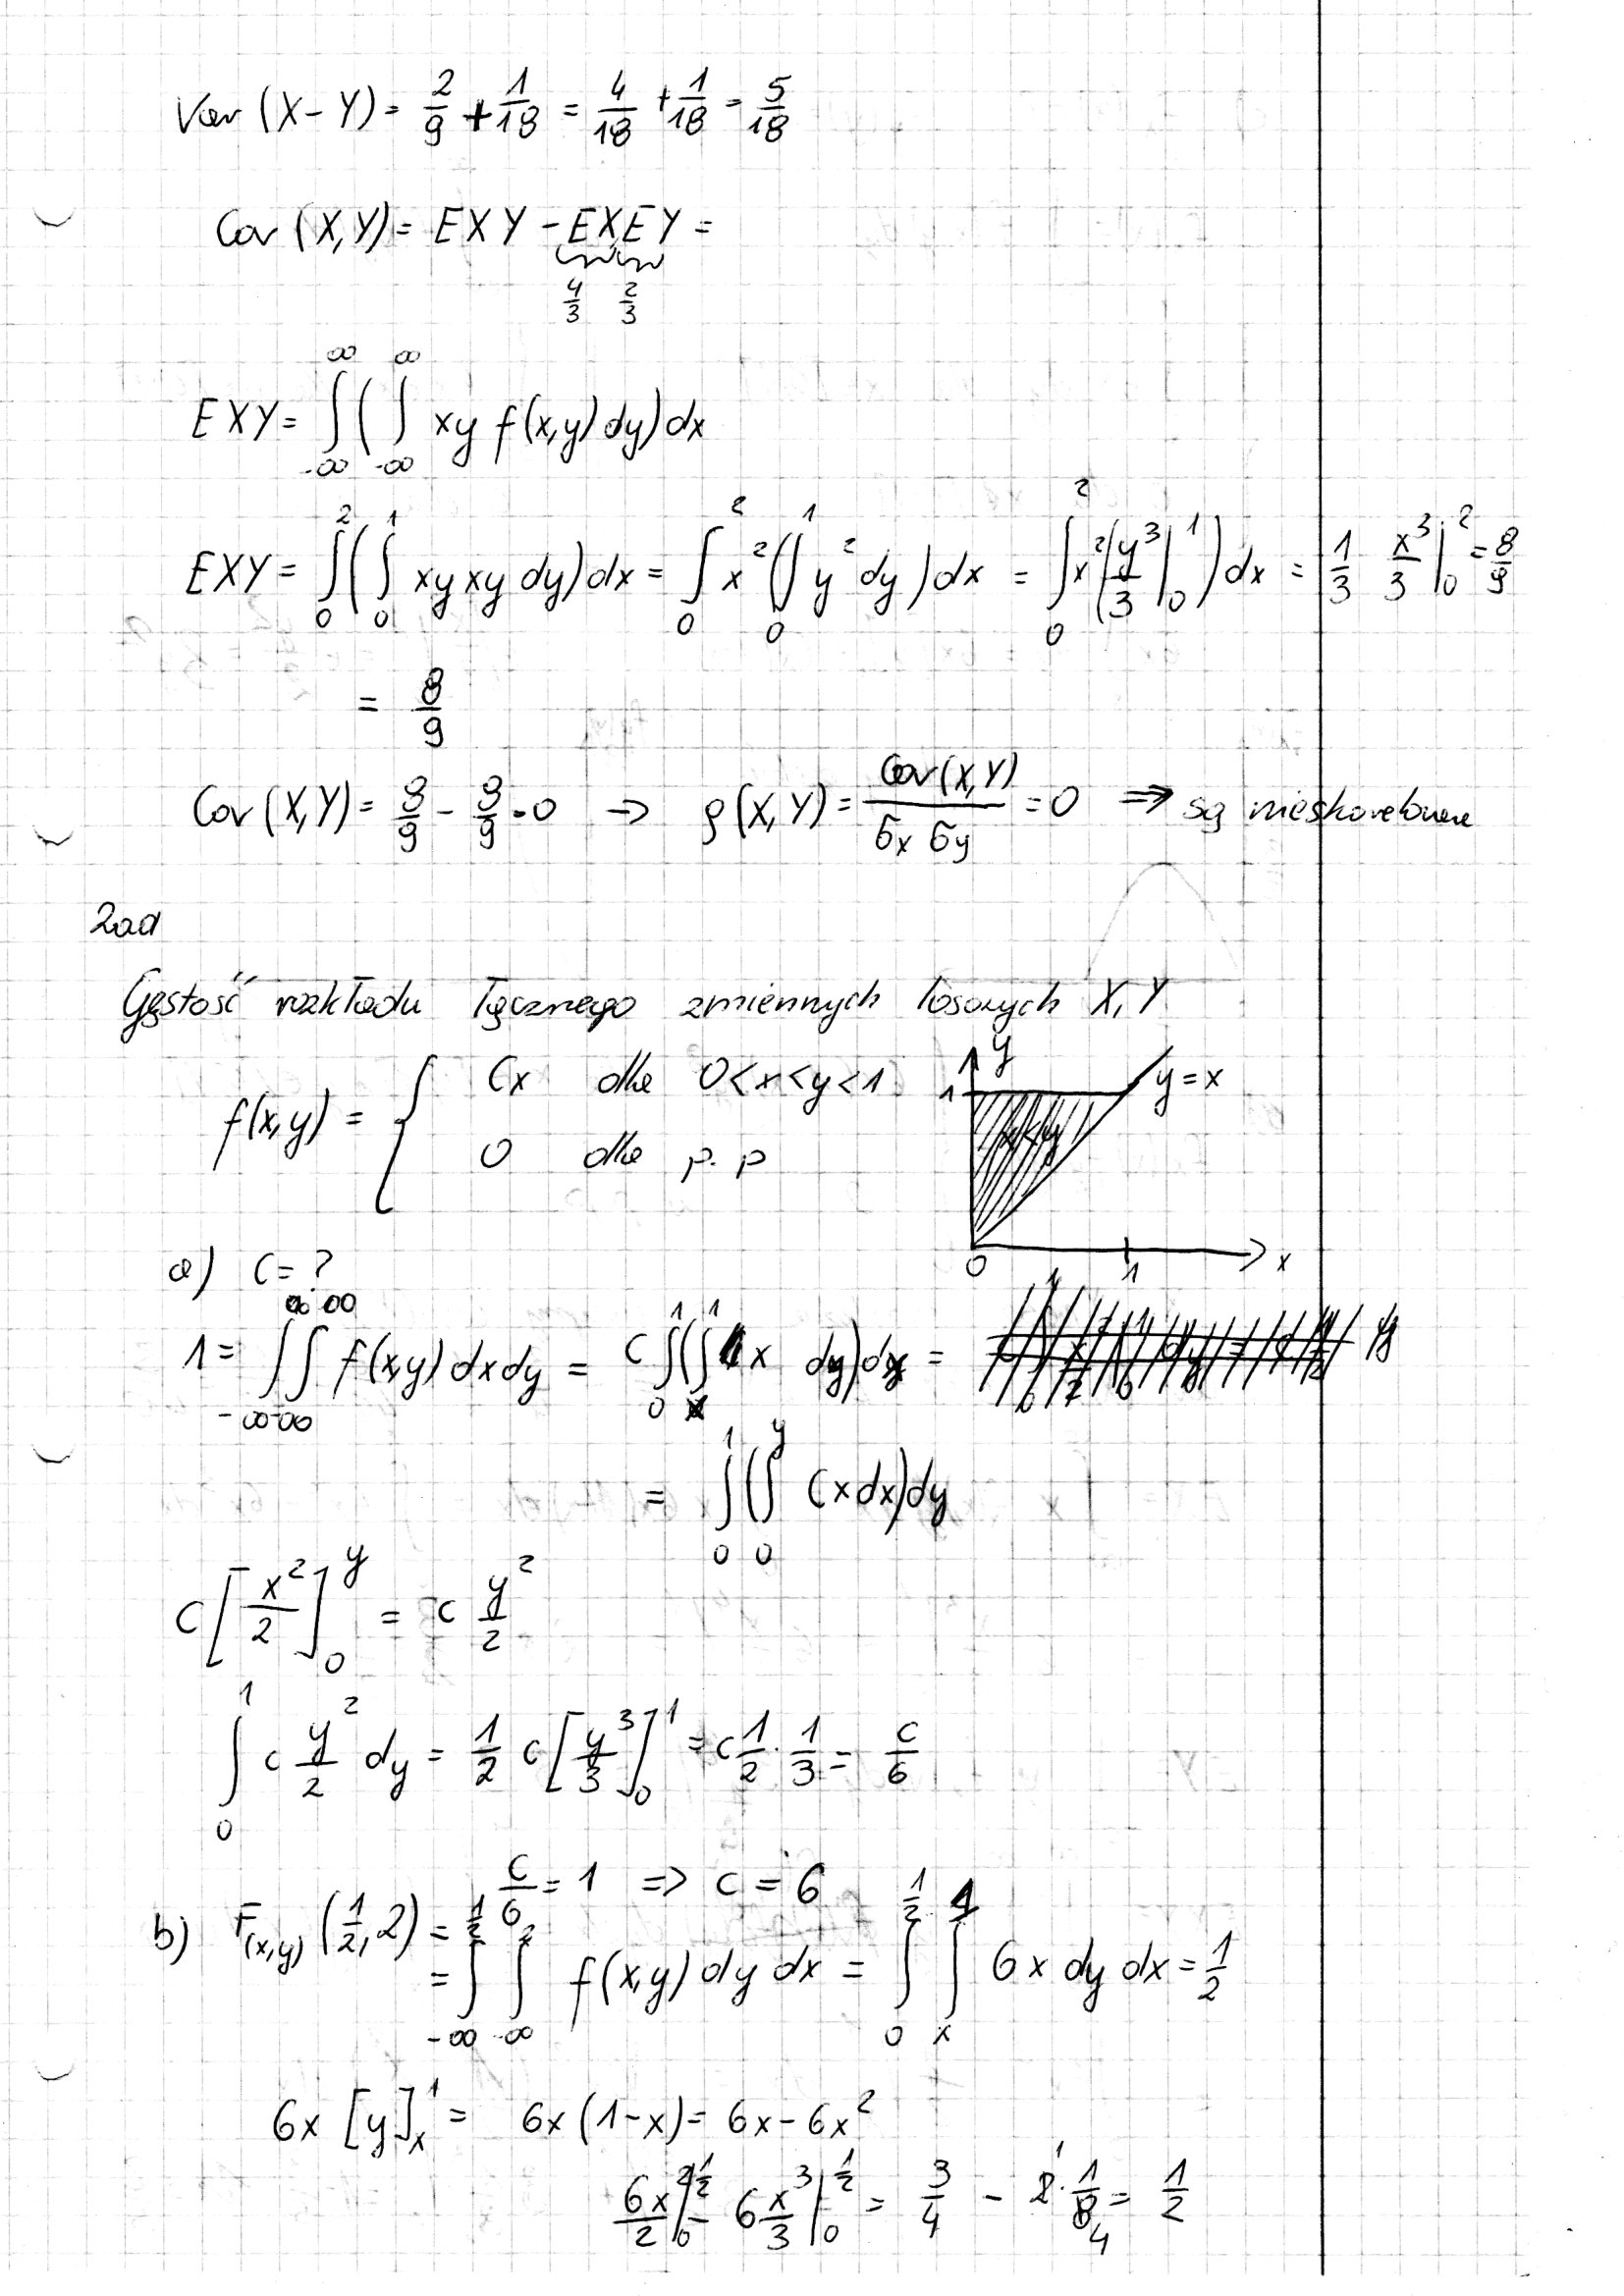 Var (X-Y) = 2/9 + 1/18 = 4/18 + 1/18 = 5/18
Cov (X,Y) = EXY - EXEY =
4/3 2/3
EXY = ∫_{-∞}^{∞} ( ∫_{-∞}^{∞} xy f(x,y) dy) dx
EXY = ∫_0^2 ( ∫_0^1 xy xy dy) dx = ∫_0^2 x^2 ( ∫_0^1 y^2 dy ) dx = ∫_0^2 x^2 ( y^3/3 |_0^1 ) dx = 1/3 x^3/3 |_0^2 = 8/9
= 8/9
Cov (X,Y) = 8/9 - 8/9 = 0 → ρ(X,Y) = Cov(X,Y)/σx σy = 0 ⇒ są nieskorelowane
Zad
Gęstość rozkładu łącznego zmiennych losowych X, Y
f(x,y) = { Cx dla 0<x<y<1
0 dla p. p
y
1
y=x
x<y
0 1 x
a) C = ?
1 = ∫_{-∞}^{∞} ∫_{-∞}^{∞} f(x,y) dx dy = C ∫_0^1 ( ∫_x^1 x dy) dx =
= ∫_0^1 ( ∫_0^y Cx dx) dy
C [x^2/2]_0^y = C y^2/2
∫_0^1 C y^2/2 dy = 1/2 C [y^3/3]_0^1 = C 1/2 · 1/3 = C/6
C/6 = 1 ⇒ C = 6
b) F_{(x,y)} (1/2, 2) =
= ∫_{-∞}^{1/2} ∫_{-∞}^{2} f(x,y) dy dx = ∫_0^{1/2} ∫_x^1 6x dy dx = 1/2
6x [y]_x^1 = 6x (1-x) = 6x - 6x^2
6x^2/2 |_0^{1/2} - 6 x^3/3 |_0^{1/2} = 3/4 - 2 · 1/8 = 1/2
1 4